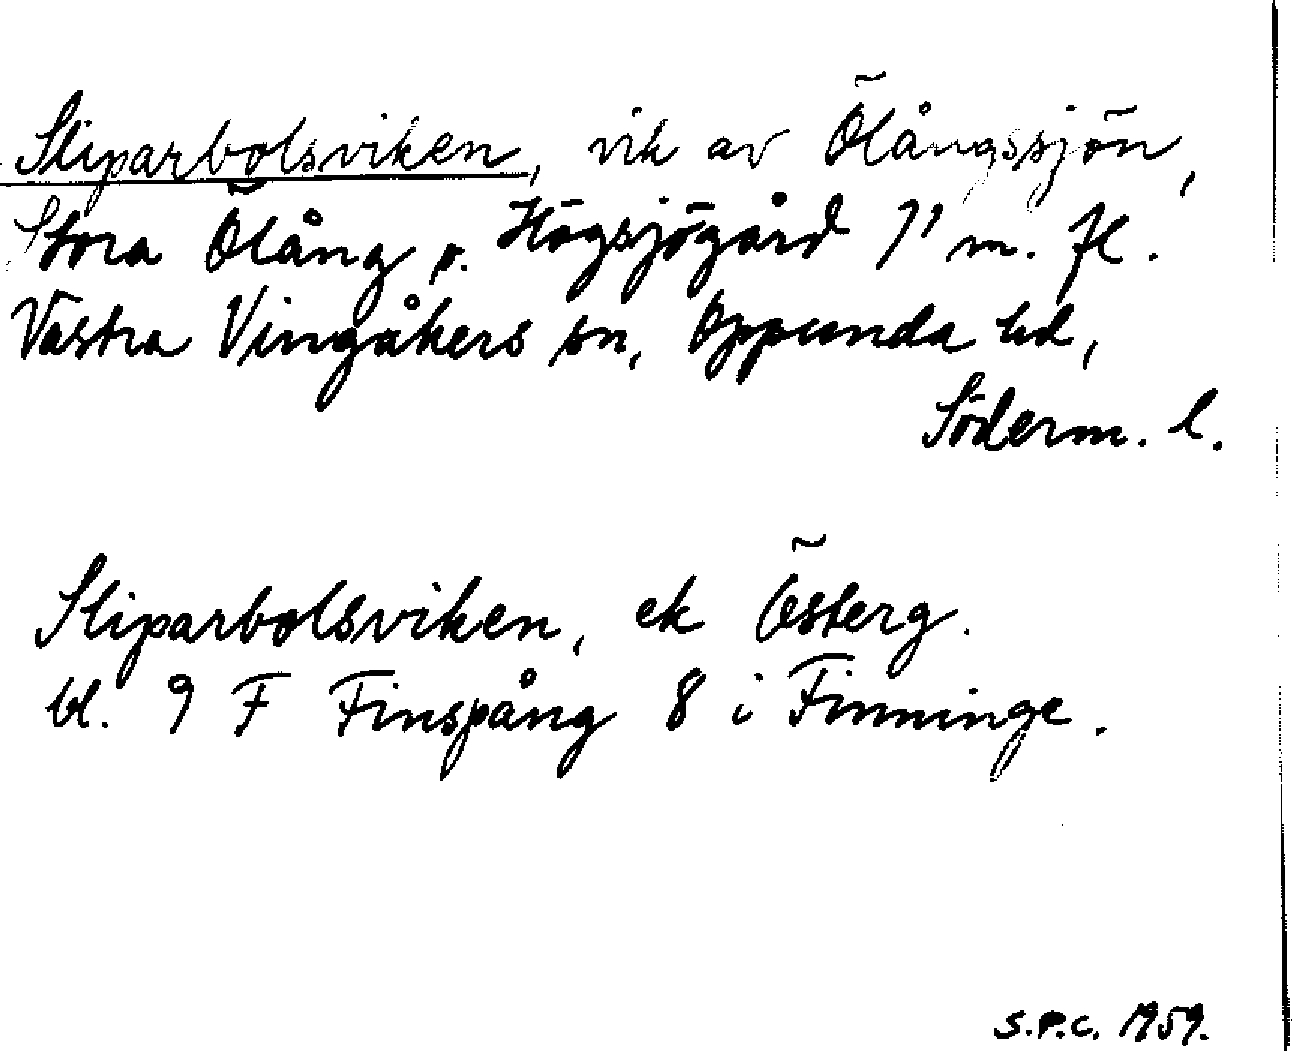 Sliparbolsviken, vik av Ölångssjön,
Stora Ölång o. Högsjögård 7¹ m. fl.
Västra Vingåkers sn, Oppunda hd,
Söderm. l.
Sliparbolsviken, ek Österg.
bl. 9 F Finspång 8 i Finninge.
S.P.C. 1959.